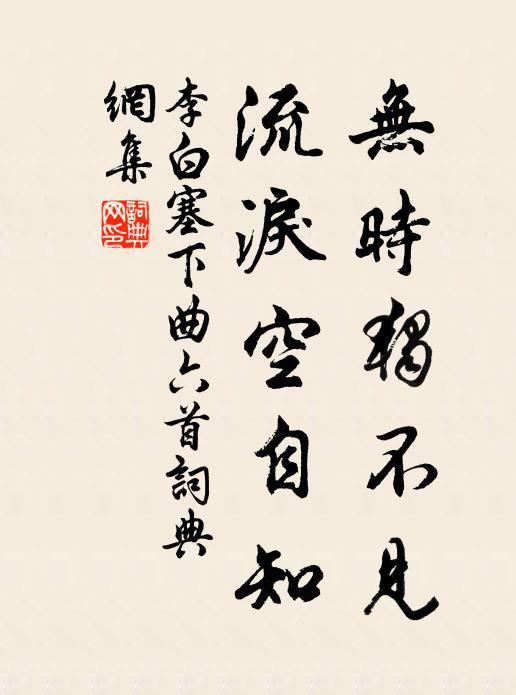 無時獨不見
流淚空自知
李白塞下曲六首詞典
網集
詞典網印